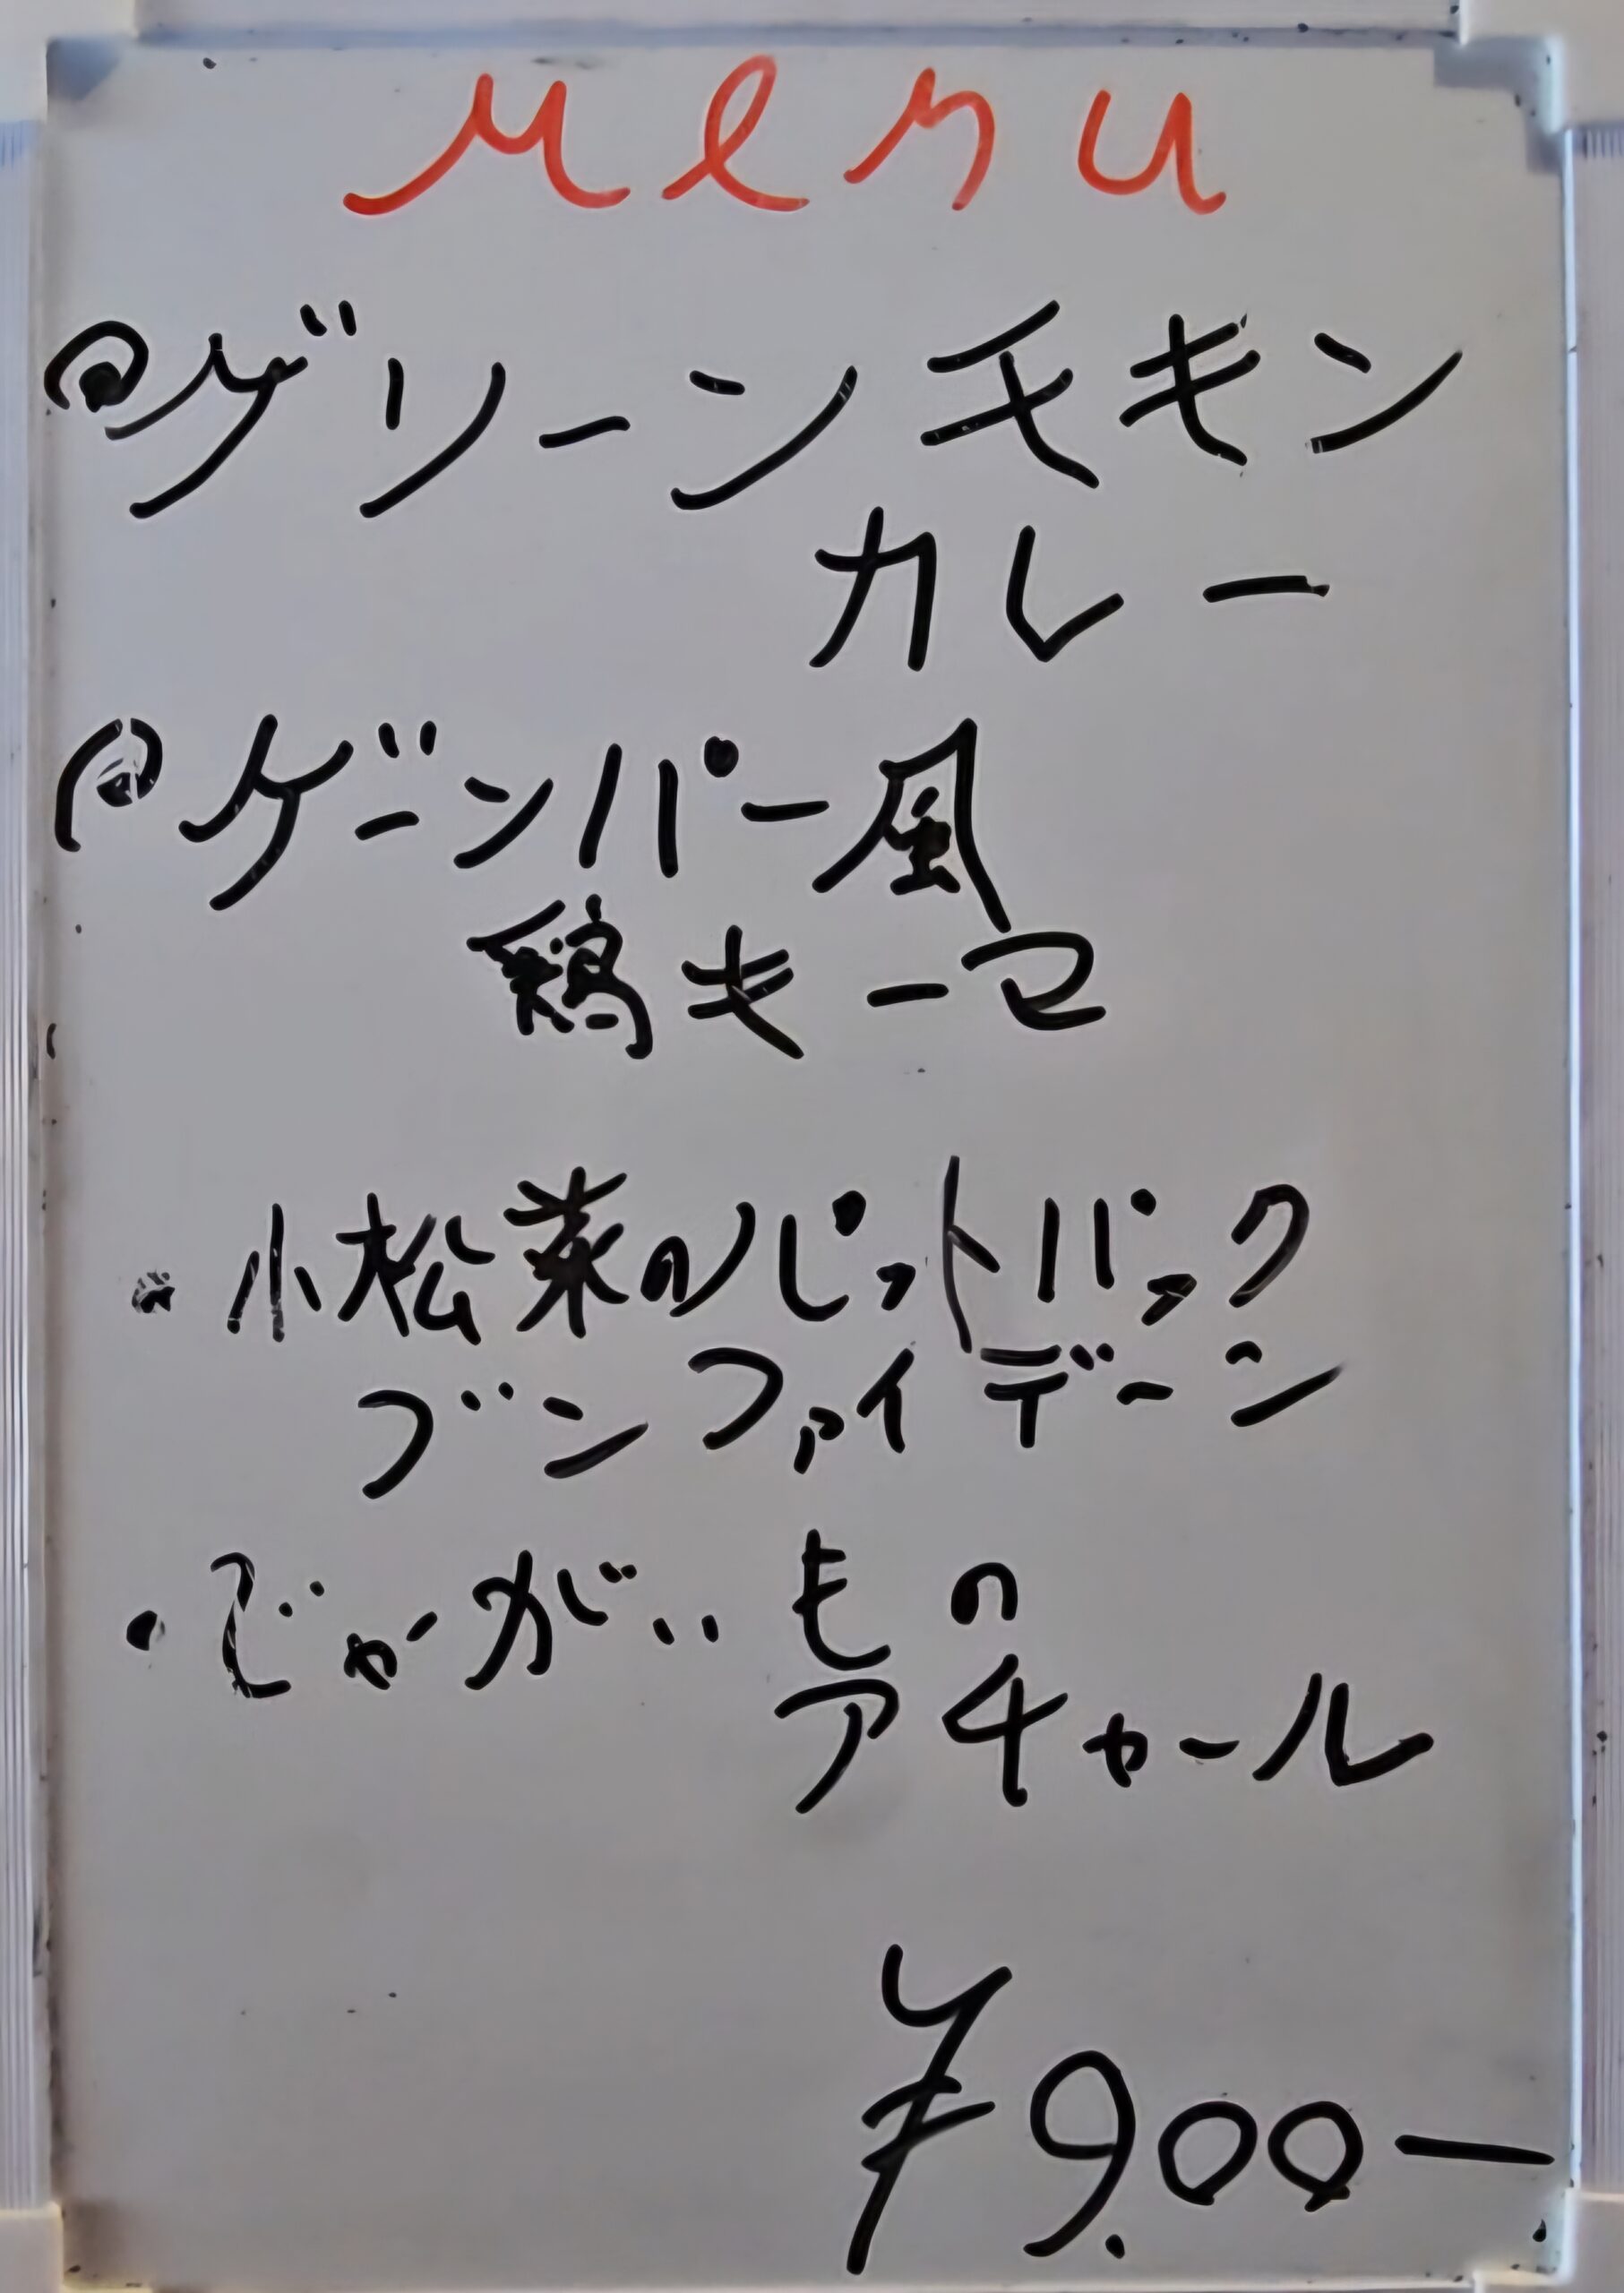 menu
◎グリーンチキン
カレー
◎ゲーンパー風
鶏キーマ
・小松菜のパットパック
ブンファイデーン
・じゃがいもの
アチャール
¥900—